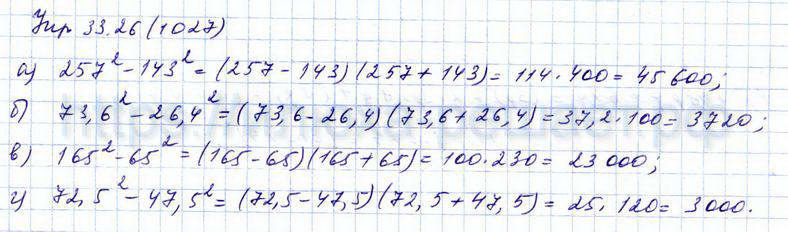 Упр 33.26 (1027)
а) 257² - 143² = (257 - 143) (257 + 143) = 114 · 400 = 45 600;
б) 73,6² - 26,4² = (73,6 - 26,4) (73,6 + 26,4) = 37,2 · 100 = 3720;
в) 165² - 65² = (165 - 65) (165 + 65) = 100 · 230 = 23 000;
г) 72,5² - 47,5² = (72,5 - 47,5) (72,5 + 47,5) = 25 · 120 = 3000.